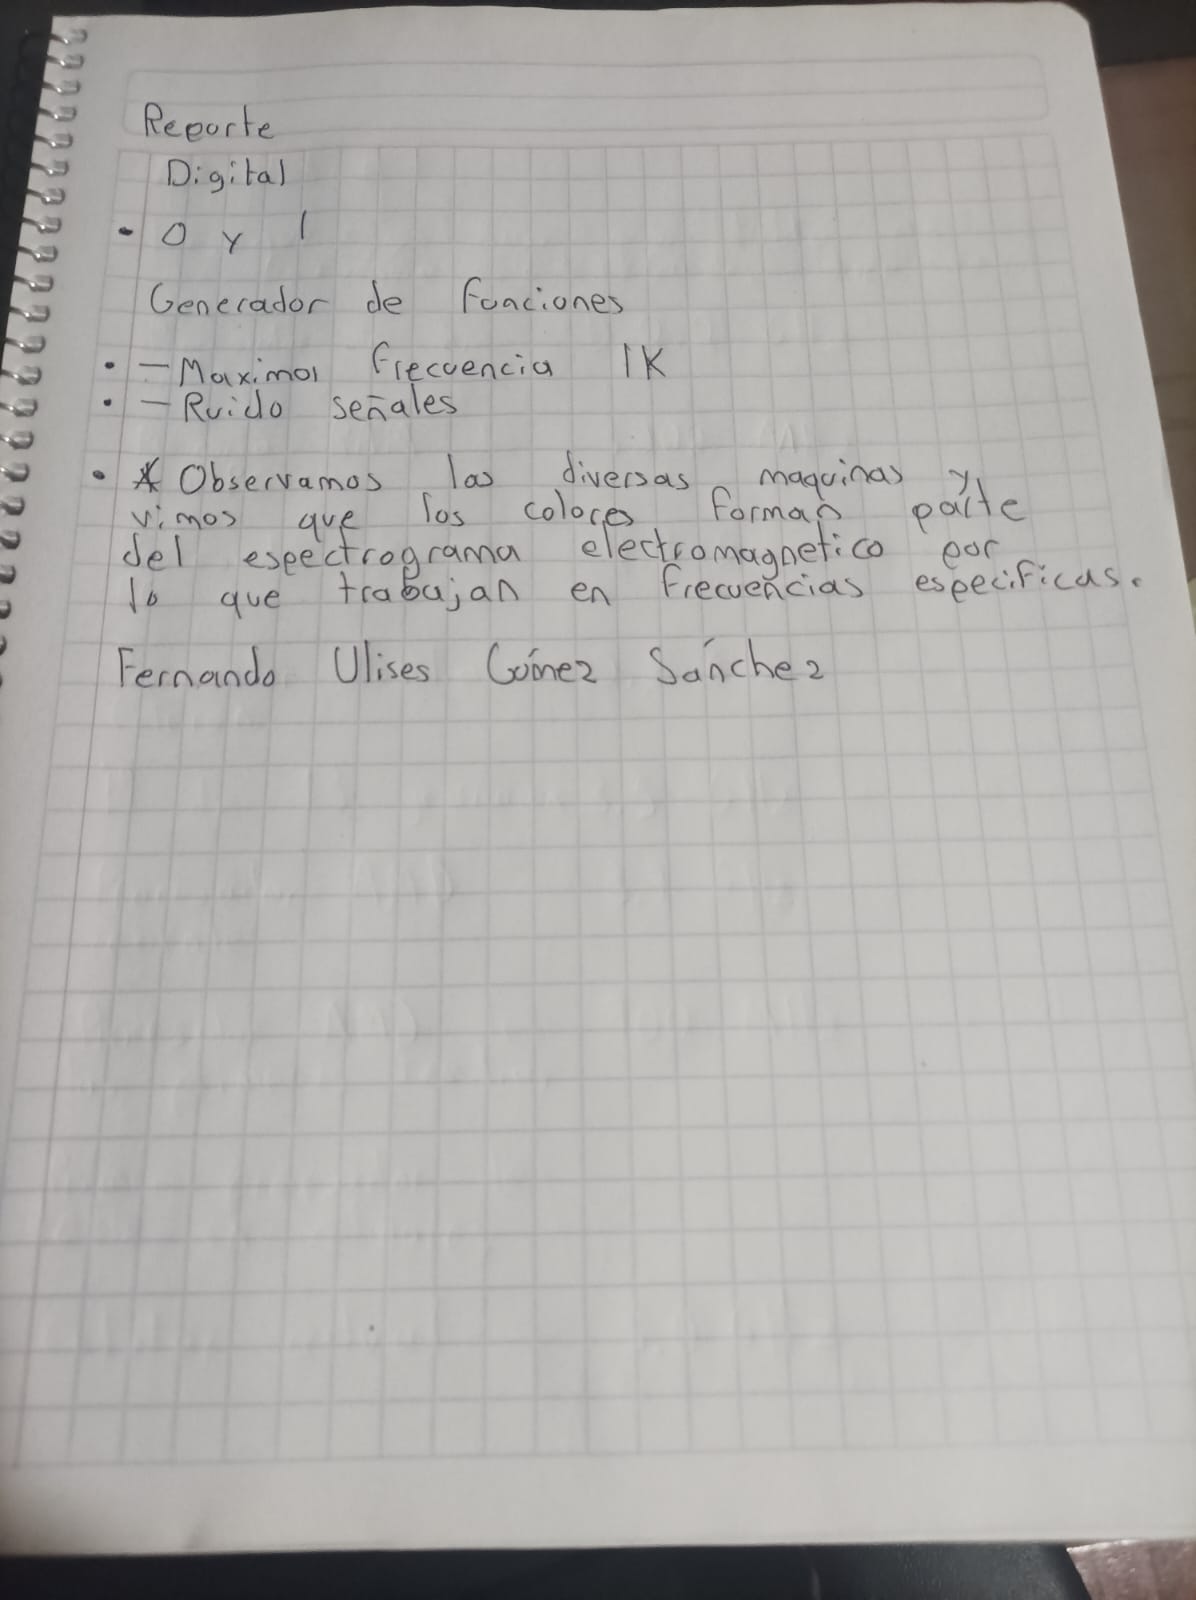 Reporte
Digital
• 0 y 1
Generador de funciones
• – Maxima frecuencia 1K
• – Ruido señales
• * Observamos las diversas maquinas y
vimos que los colores forman parte
del espectrograma electromagnetico por
lo que trabajan en frecuencias especificas.
Fernando Ulises Gómez Sánchez